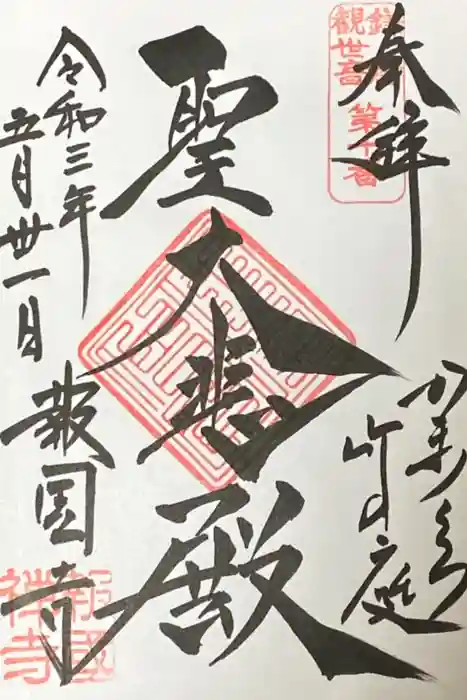 奉拝
かまくら
竹の庭
聖大悲殿
令和三年
五月卅一日
報国寺
観世音 第十番
報國
禅寺